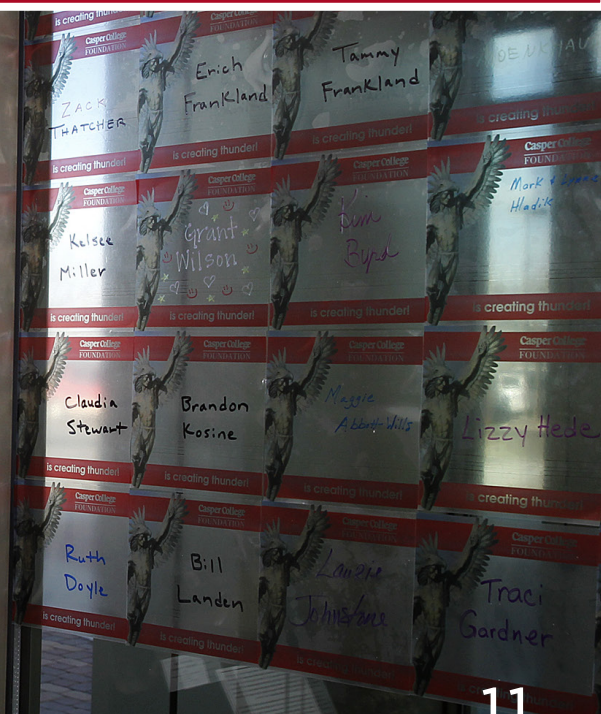 is creating thunder!
Casper College
FOUNDATION
ZACK
THATCHER
is creating thunder!
Casper College
FOUNDATION
Erich
Frankland
is creating thunder!
Tammy
Frankland
is creating thunder!
is creating thunder!
Casper College
FOUNDATION
Kelsee
Miller
is creating thunder!
Casper College
FOUNDATION
Grant
Wilson
is creating thunder!
Casper College
FOUNDATION
Kim
Byrd
is creating thunder!
Casper College
FOUNDATION
Mark &
Hladik
is creating thunder!
Casper College
FOUNDATION
Claudia
Stewart
is creating thunder!
Casper College
FOUNDATION
Brandon
Kosine
is creating thunder!
Casper College
FOUNDATION
Maggie
Abbott-Wills
is creating thunder!
Casper College
FOUNDATION
Lizzy Hede
is creating thunder!
Casper College
FOUNDATION
Ruth
Doyle
is creating thunder!
Casper College
FOUNDATION
Bill
Landen
is creating thunder!
Casper College
FOUNDATION
Johnstone
is creating thunder!
Casper College
FOUNDATION
Traci
Gardner
11